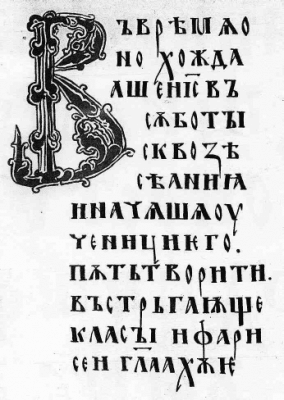 Въврѣмѧо
но хожда
аше ис҃ въ
сѫботꙑ
сквозѣ
сѣꙗниꙗ
иначѧшѧоу
ченициѥго.
пѫтьтворити.
въстрьгаѭще
класꙑ ифари
сеи глаахѫѥ